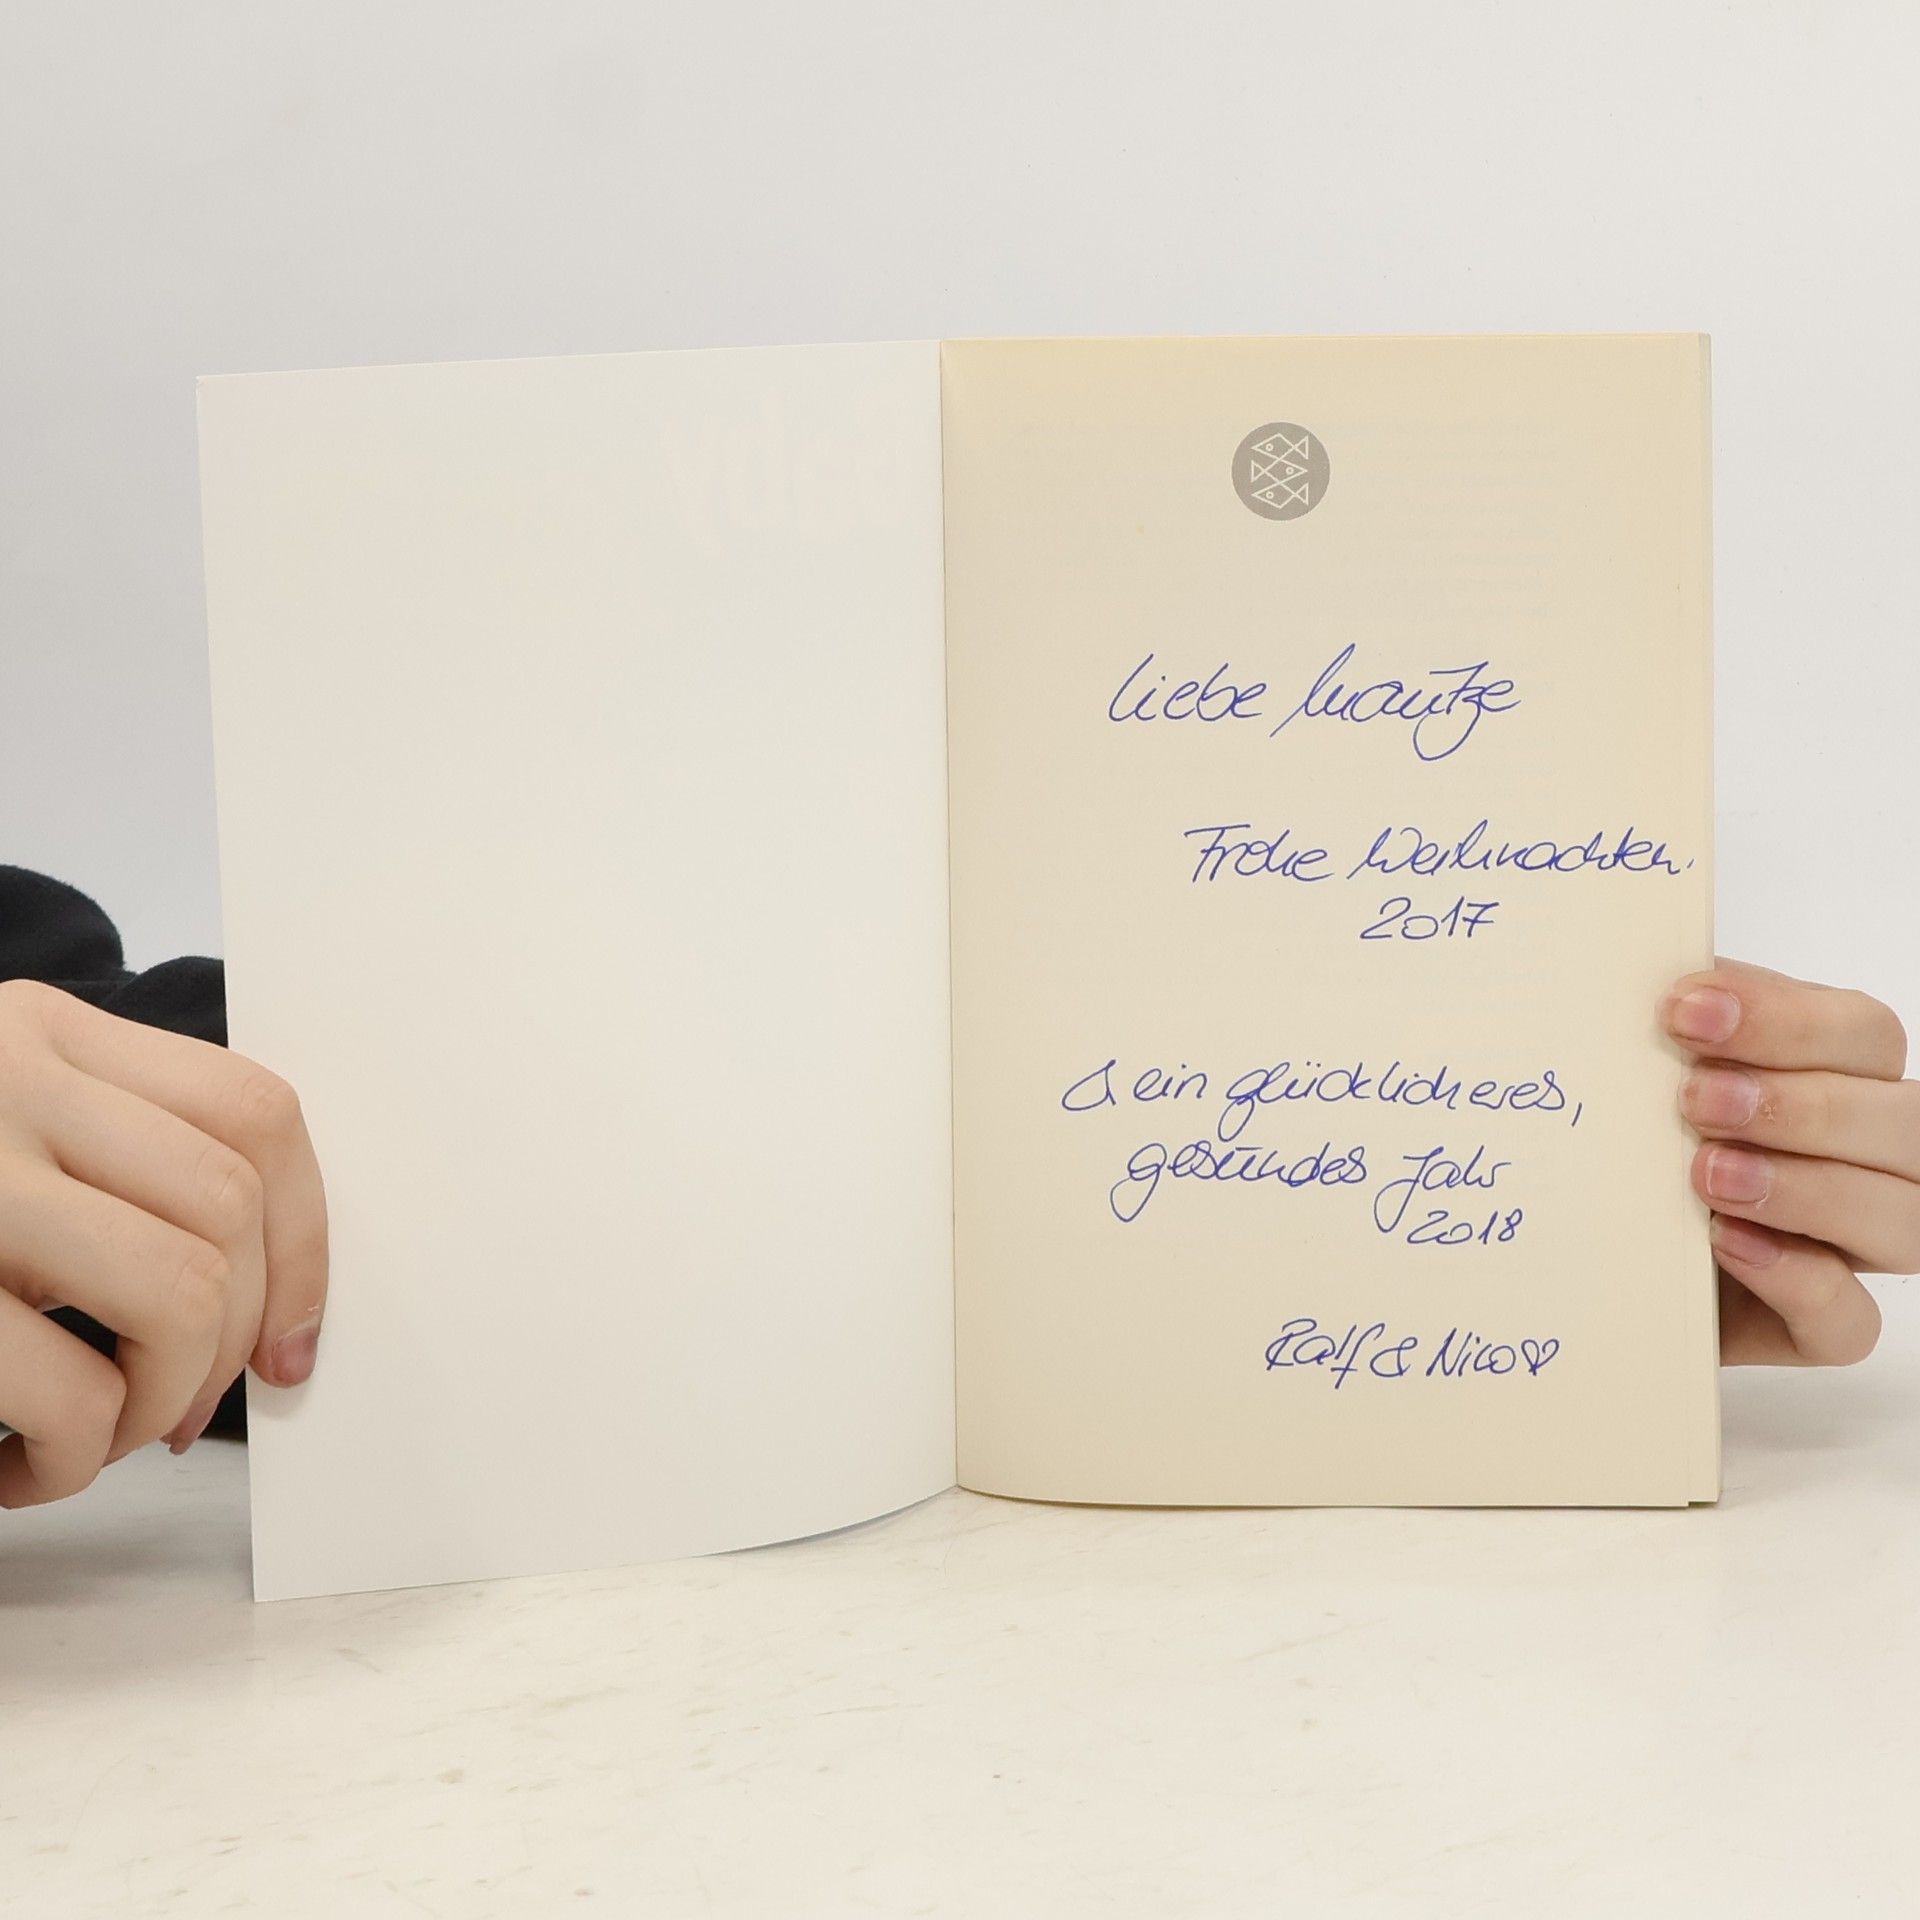 Liebe Mautze
Frohe Weihnachten.
2017
& ein glücklicheres,
gesundes Jahr
2018
Ralf & Nico♡